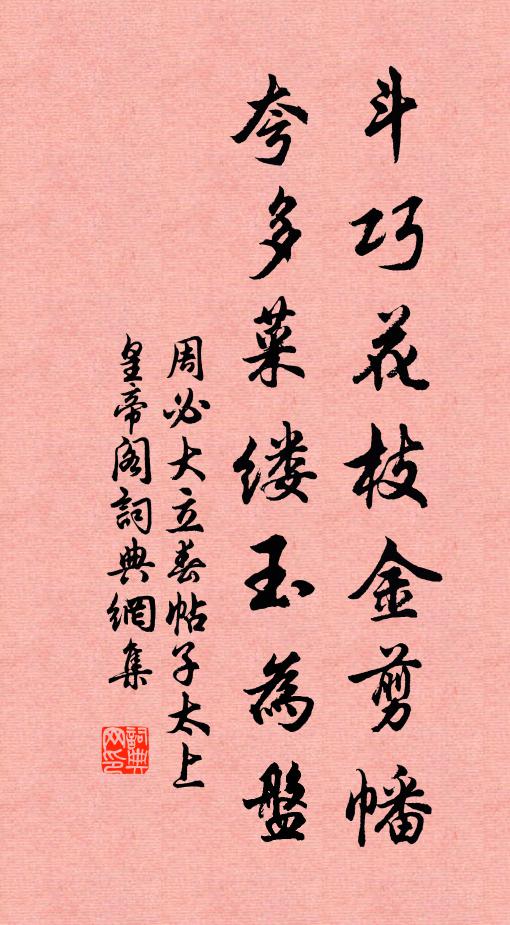 斗巧花枝金剪幡
夸多菜缕玉為盤
周必大立春帖子太上
皇帝阁詞典網集
詞典
网印